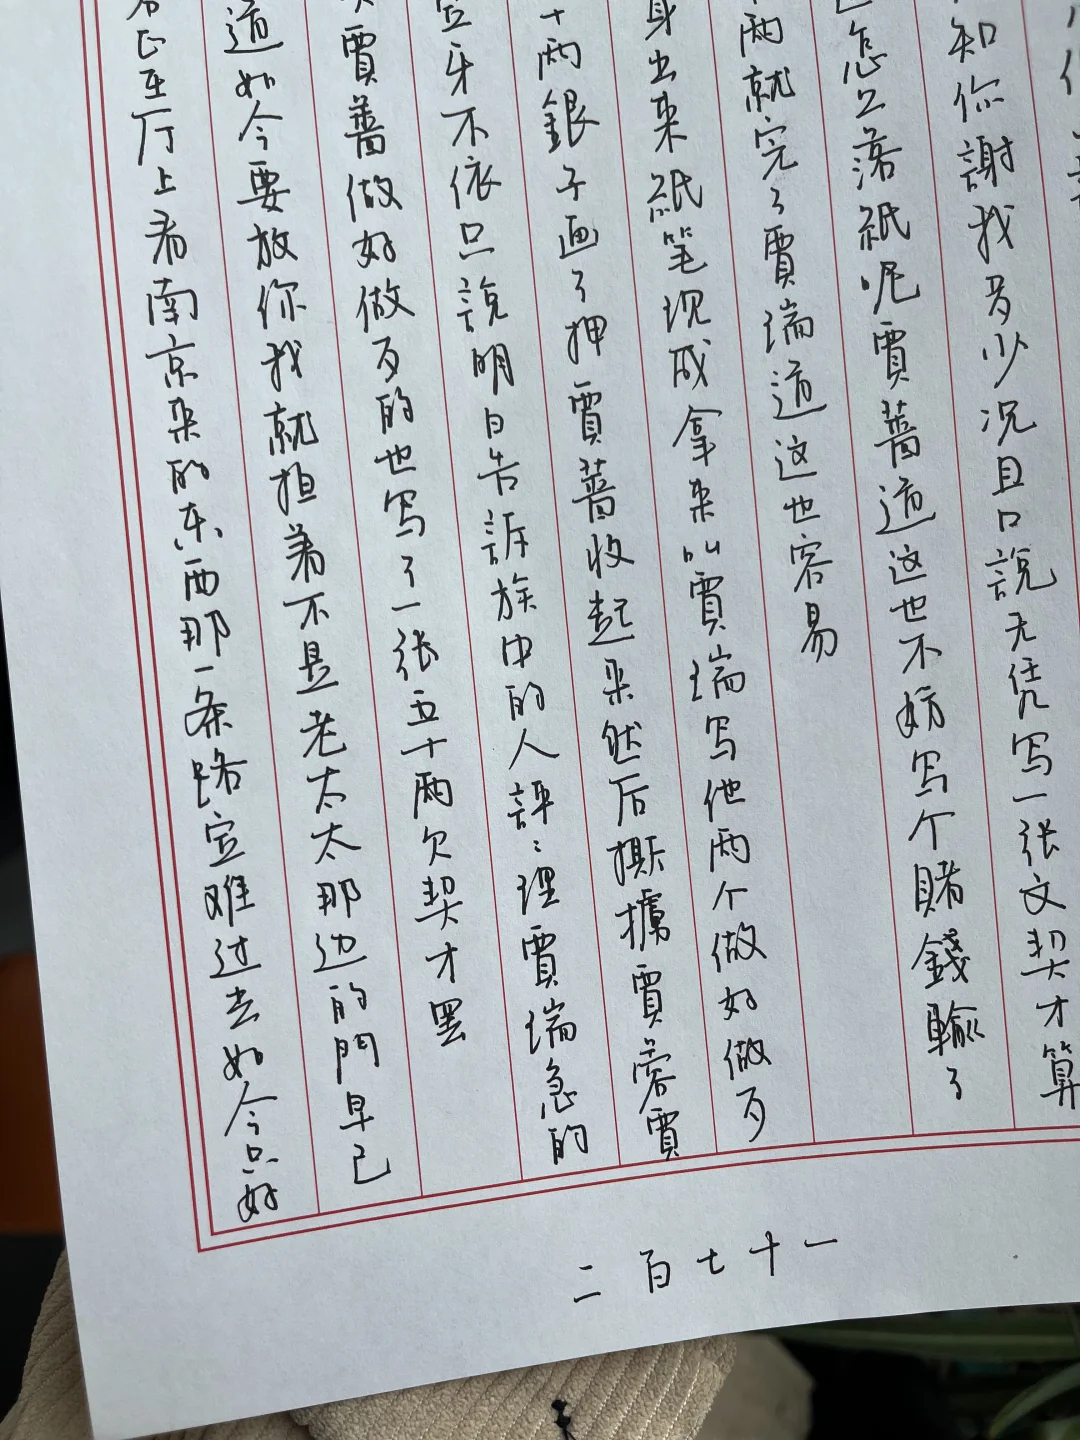 知你謝我多少况且口說无凭写一张文契才算
怎么落紙呢賈薔道这也不妨写个賭錢輸了
两就完了賈瑞道这也容易
身出来紙笔现成拿来叫賈瑞写他两个做好做歹
十两銀子画了押賈薔收起来然后撕擄賈蓉賈
牙不依只說明日告訴族中的人評〻理賈瑞急的
賈薔做好做歹的也写了一张五十两欠契才罢
道如今要放你我就担着不是老太太那边的門早已
正在厅上看南京来的东西那一条路定难过去如今只好
二百七十一